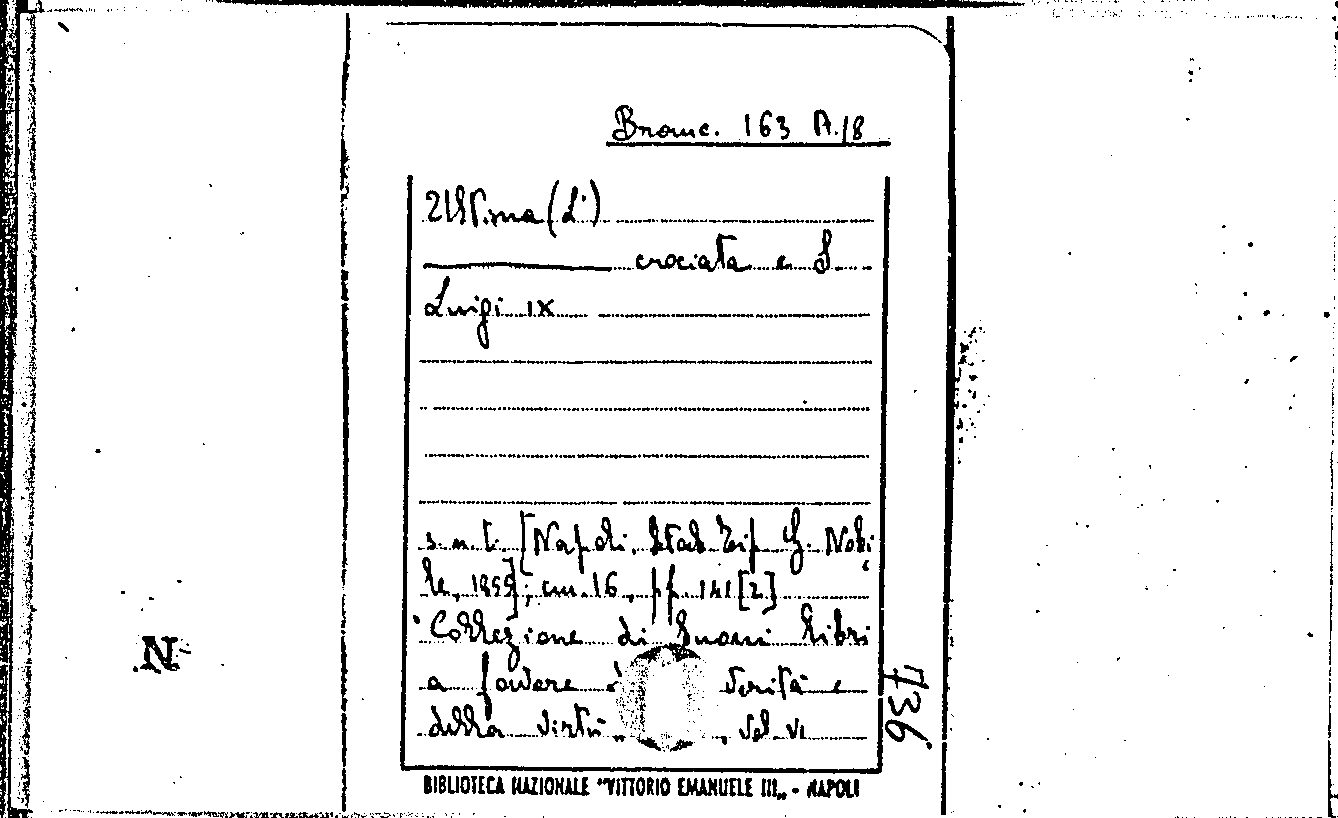 Branc. 163 A.18
Ultima (L')
crociata e S.
Luigi IX
s.n.t. [Napoli, Stab. Tip. G. Nobi
le, 1855]; cm. 16, pp. 141 [2]
"Collezione di buoni libri
a favore verità e
della virtù, vol. VI
736
N
BIBLIOTECA NAZIONALE "VITTORIO EMANUELE III„ - NAPOLI